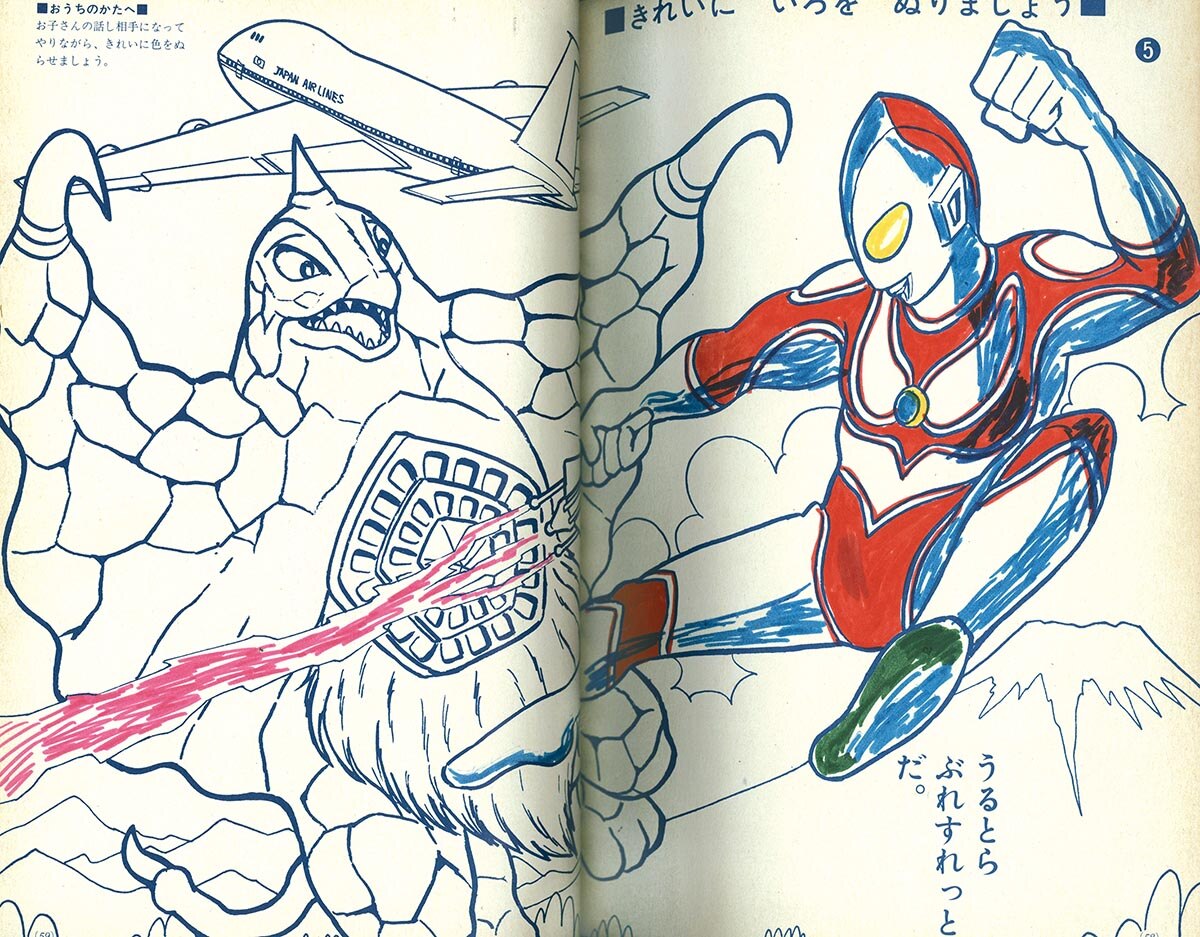 ■おうちのかたへ■
お子さんの話し相手になって
やりながら、きれいに色をぬ
らせましょう。
JAPAN AIRLINES
■きれいに いろを ぬりましょう■
5
うるとら
ぶれすれっと
だ。